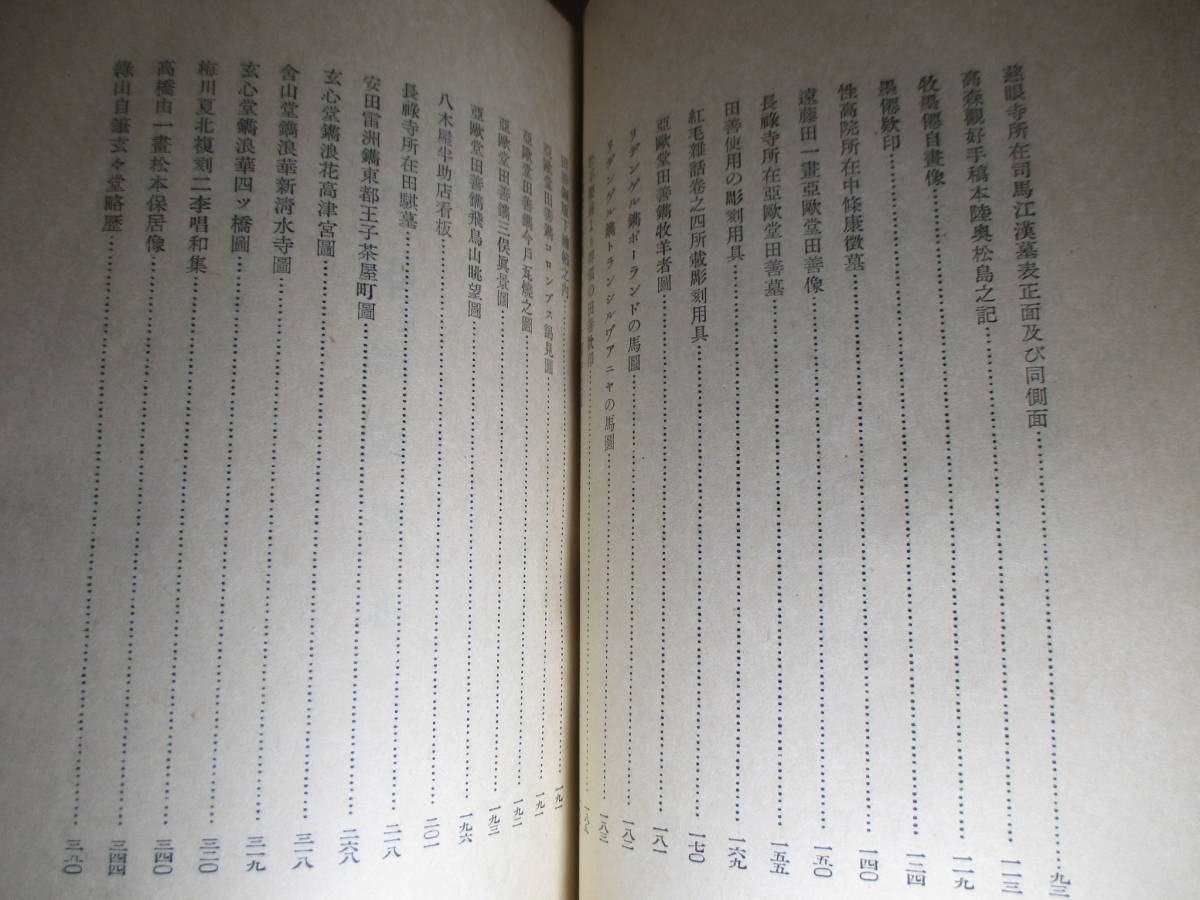 慈眼寺所在司馬江漢墓表正面及び同側面……九三
高森觀好手稿本陸奧松島之記……一一三
牧墨僊自畫像……一一九
墨僊欵印……一二四
性高院所在中條康徵墓……一四〇
遠藤田一畫亞歐堂田善像……一五〇
長祿寺所在亞歐堂田善墓……一五五
田善使用の彫刻用具……一六九
紅毛雜話卷之四所載彫刻用具……一七〇
亞歐堂田善鐫牧羊者圖……一八一
リデンゲル鐫ポーランドの馬圖……一八二
リデンゲル鐫トランシルヴアニヤの馬圖……一八三
亞歐堂田善鐫コロンブス謁見圖……一九一
亞歐堂田善鐫今戸瓦燒之圖……一九二
亞歐堂田善鐫三俣眞景圖……一九三
亞歐堂田善鐫飛鳥山眺望圖……一九六
八木屋半助店看板……二〇一
長祿寺所在田騏墓……二一八
安田雷洲鐫東都王子茶屋町圖……二六八
玄心堂鐫浪花高津宮圖……三一八
舍山堂鐫浪華新淸水寺圖……三一九
玄心堂鐫浪華四ツ橋圖……三二〇
梅川夏北複刻二李唱和集……三四〇
高橋由一畫松本保居像……三四四
綠山自筆玄々堂略歷……